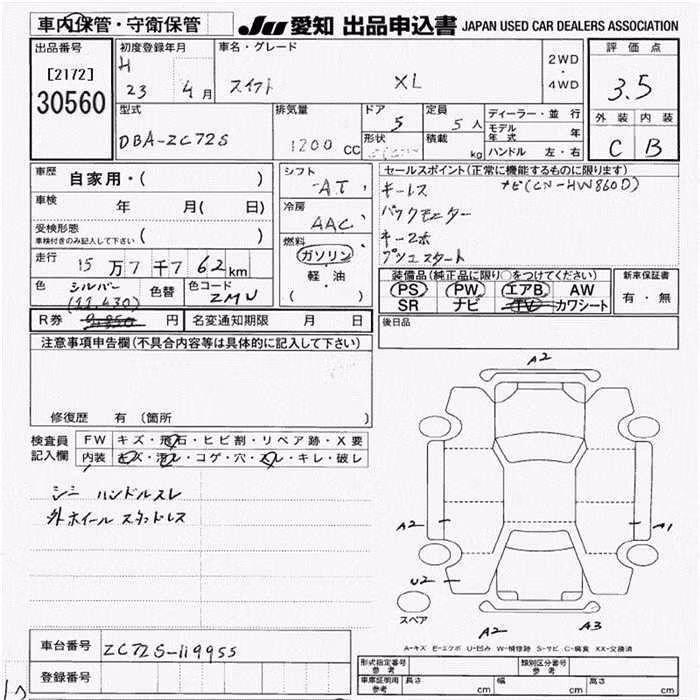 車内保管・守衛保管
JU 愛知 出品申込書 JAPAN USED CAR DEALERS ASSOCIATION
出品番号
[2172]
30560
初度登録年月
H 23 4月
車名・グレード
スイフト XL
2WD
・
4WD
評価点
3.5
外装 内装
C B
型式
DBA-ZC72S
排気量
1200 CC
ドア
5
形状
定員
5人
積載
kg
ディーラー・並行
モデル年式 年
ハンドル 左・右
車歴
自家用・( )
車検 年 月( 日)
受検形態
車検付きのみ記入して下さい ( )
走行 15万7千762km
色 シルバー
(22.430)
色替
色コード
ZMU
R券 9,850 円
名変通知期限 月 日
シフト
AT
冷房
AAC
燃料
ガソリン
軽・油
( )
セールスポイント(正常に機能するものに限ります)
キーレス ナビ(CN-HW860D)
バックモニター
キー2ホ
プシュスタート
装備品(純正品に限り○をつけてください)
PS PW エアB AW
SR ナビ TV カワシート
新車保証書
有・無
後日品
注意事項申告欄(不具合内容等は具体的に記入して下さい)
修復歴 有 (箇所 )
検査員
記入欄
FW キズ・飛石・ヒビ割・リペア跡・X要
内装 キズ・汚レ・コゲ・穴・スレ・キレ・破レ
シミ ハンドルスレ
外ホイール スタッドレス
A2
A2
A1
U2
スペア
A2
A3
A-キズ E-エクボ U-凹み W-補修跡 S-サビ C-腐食 XX-交換済
車台番号 ZC72S-119955
登録番号
形式指定番号
参考
類別区分番号
参考
車庫証明用
参考
長さ cm 幅 cm 高さ cm